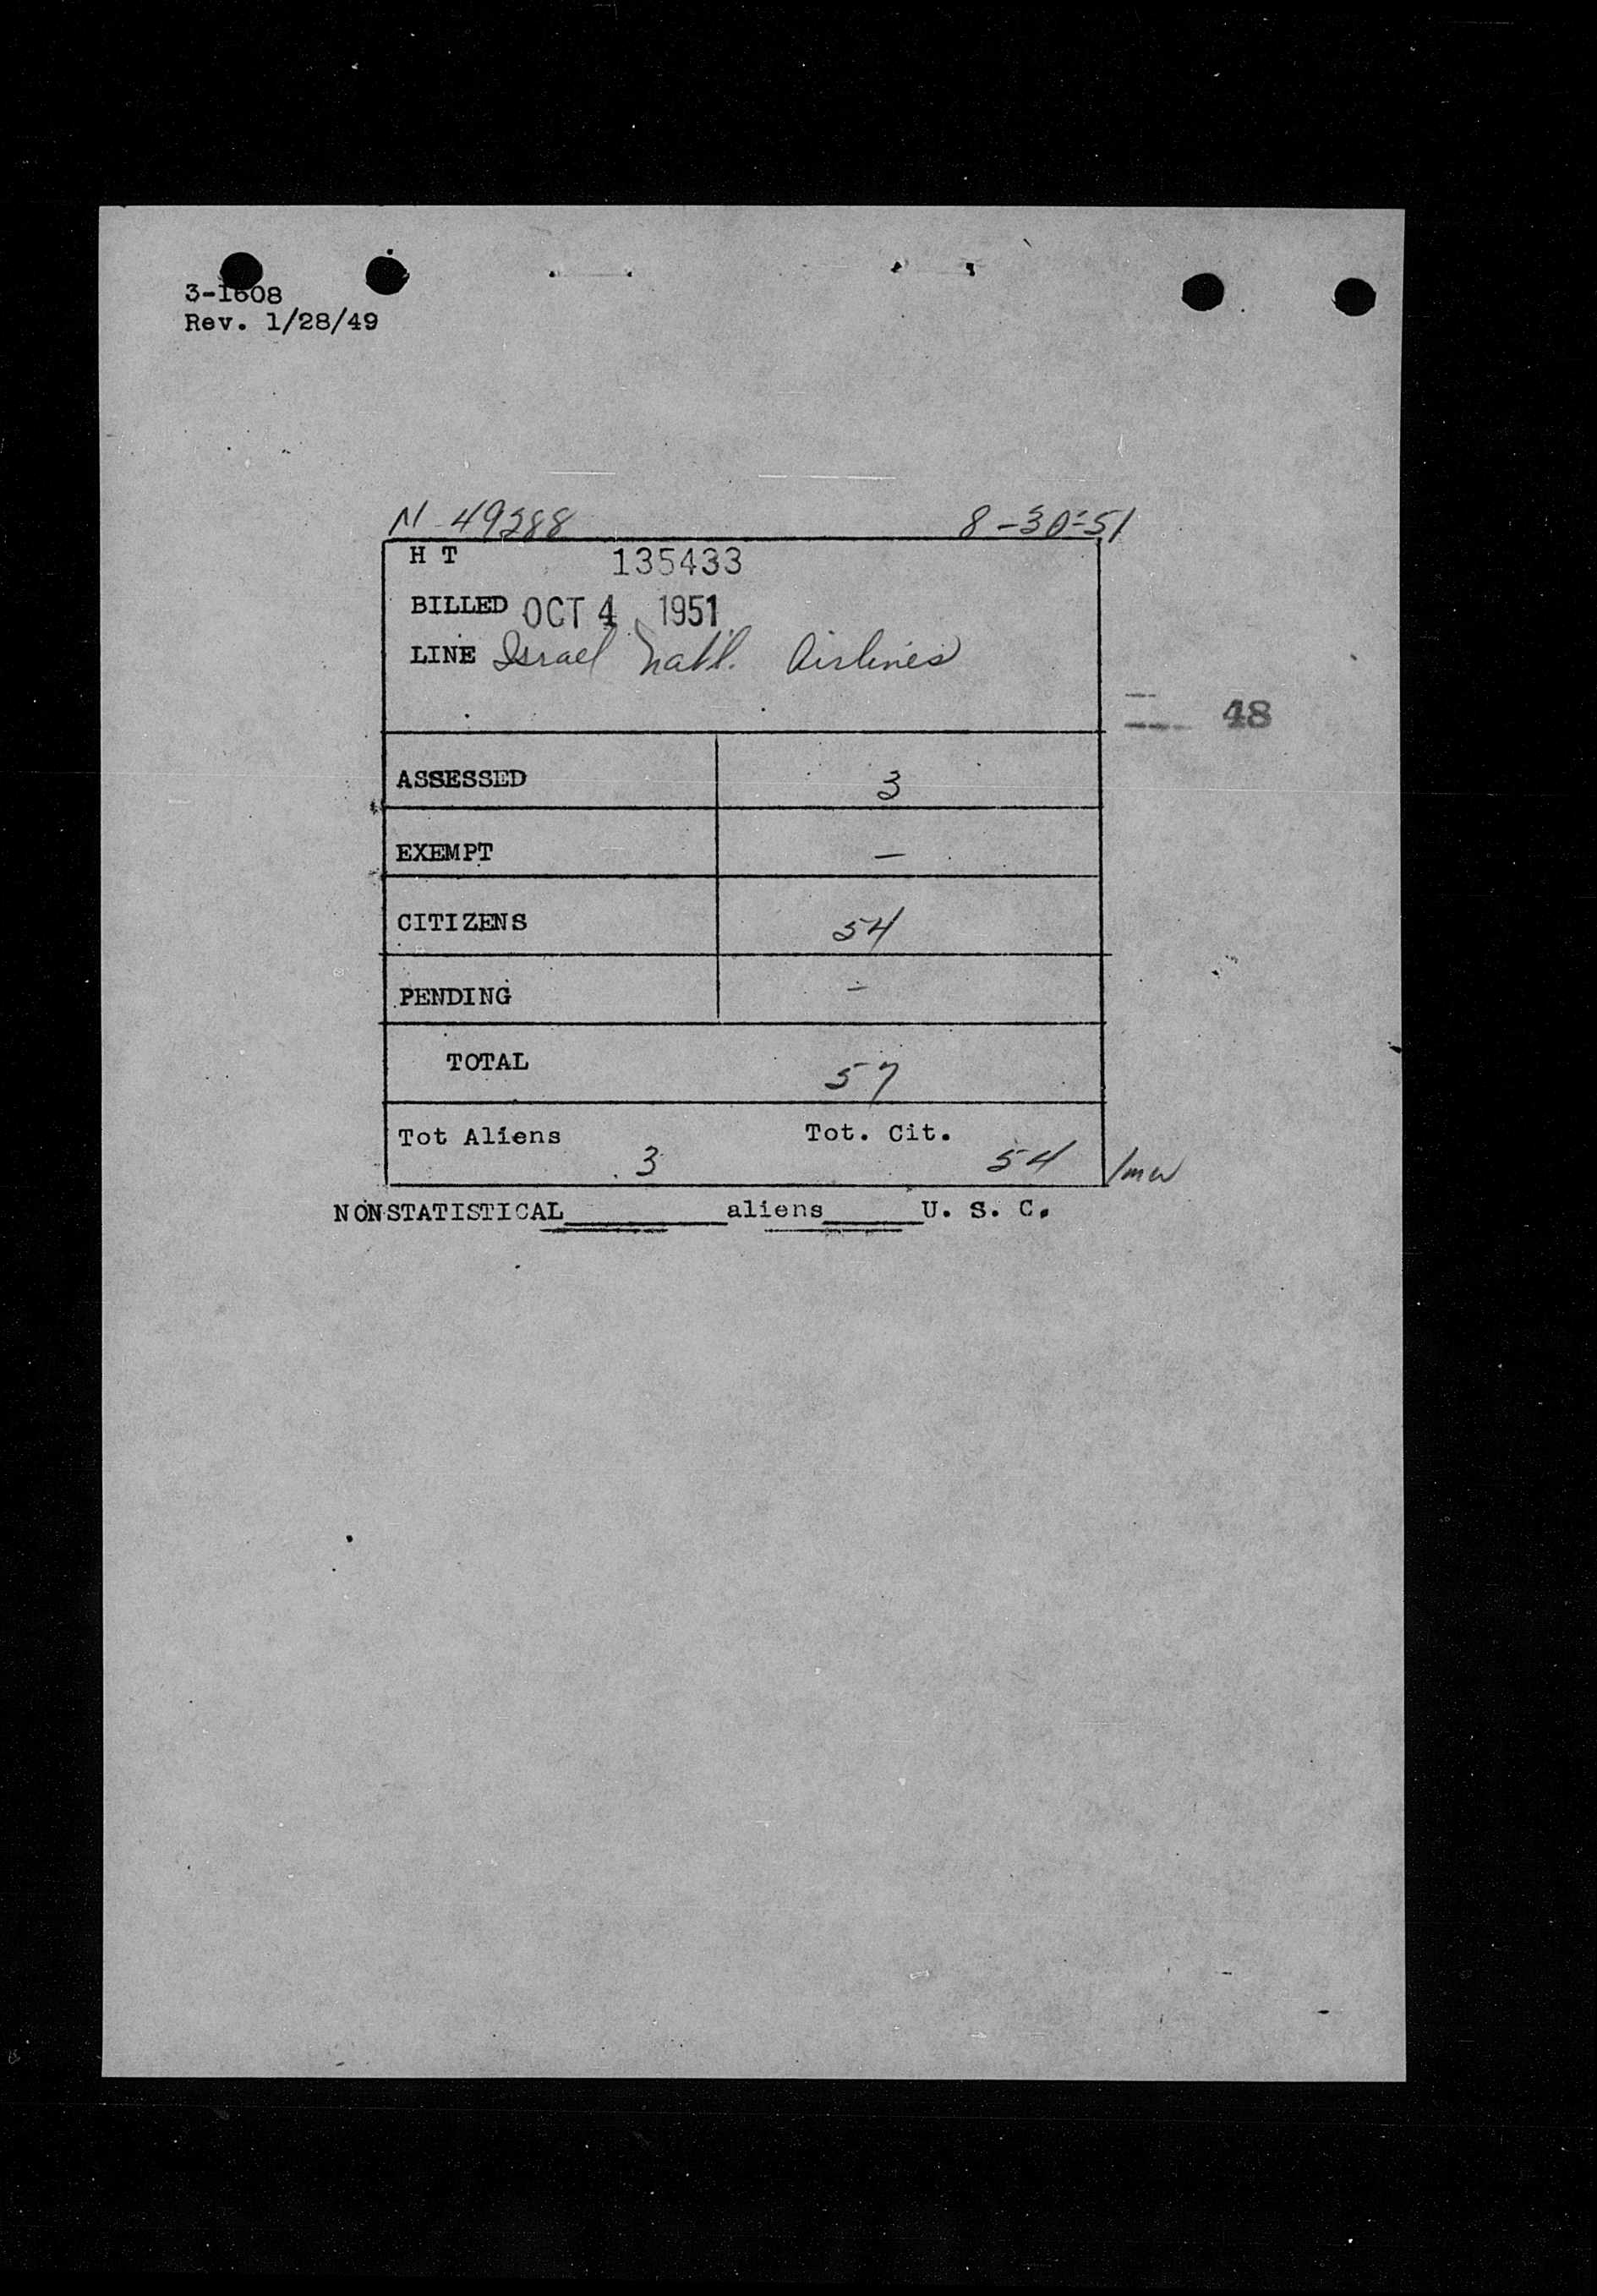 3-1608
Rev. 1/28/49
N-49288 8-30-51
H T 135433
BILLED OCT 4 1951
LINE Israel Natl. Airlines
48
ASSESSED 3
EXEMPT —
CITIZENS 54
PENDING —
TOTAL 57
Tot Aliens 3 Tot. Cit. 54 /mw
NONSTATISTICAL______aliens____U. S. C.